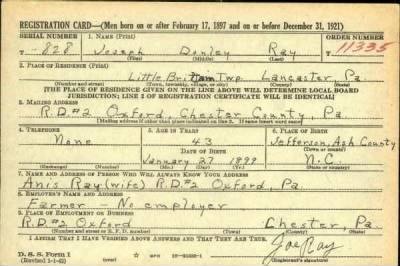 REGISTRATION CARD—(Men born on or after February 17, 1897 and on or before December 31, 1921)
SERIAL NUMBER 1. NAME (Print) ORDER NUMBER
T-828 Joseph Donley Ray 11335
(First) (Middle) (Last)
2. PLACE OF RESIDENCE (Print)
Little Britain Twp. Lancaster, Pa.
(Number and street) (Town, township, village, or city) (County) (State)
[THE PLACE OF RESIDENCE GIVEN ON THE LINE ABOVE WILL DETERMINE LOCAL BOARD
JURISDICTION; LINE 2 OF REGISTRATION CERTIFICATE WILL BE IDENTICAL]
3. MAILING ADDRESS
R.D.#2 Oxford, Chester County, Pa.
[Mailing address if other than place indicated on line 2. If same insert word same]
4. TELEPHONE 5. AGE IN YEARS 6. PLACE OF BIRTH
None 43 Jefferson, Ash County
DATE OF BIRTH (Town or county)
January 27 1899 N.C.
(Exchange) (Number) (Mo.) (Day) (Yr.) (State or country)
7. NAME AND ADDRESS OF PERSON WHO WILL ALWAYS KNOW YOUR ADDRESS
Anis Ray (wife) R.D.#2 Oxford, Pa
8. EMPLOYER'S NAME AND ADDRESS
Farmer - No employer
9. PLACE OF EMPLOYMENT OR BUSINESS
R.D.#2 Oxford Chester, Pa.
(Number and street or R. F. D. number) (Town) (County) (State)
I AFFIRM THAT I HAVE VERIFIED ABOVE ANSWERS AND THAT THEY ARE TRUE.
D. S. S. Form 1 Joe Ray
(Revised 1-1-42)